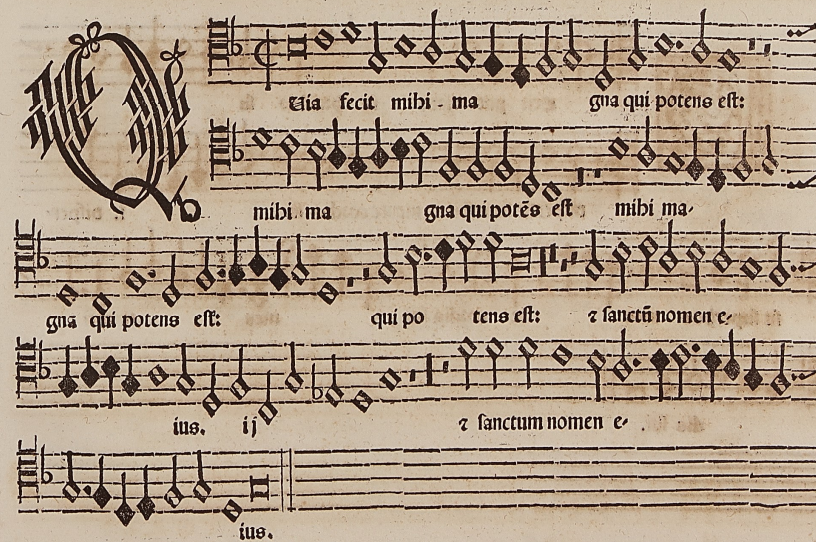 QUia fecit mihi - ma gna qui potens est:
mihi ma gna qui potēs est mihi ma-
gna qui potens est: qui po tens est: ⁊ sanctū nomen e-
ius. ij ⁊ sanctum nomen e-
ius.